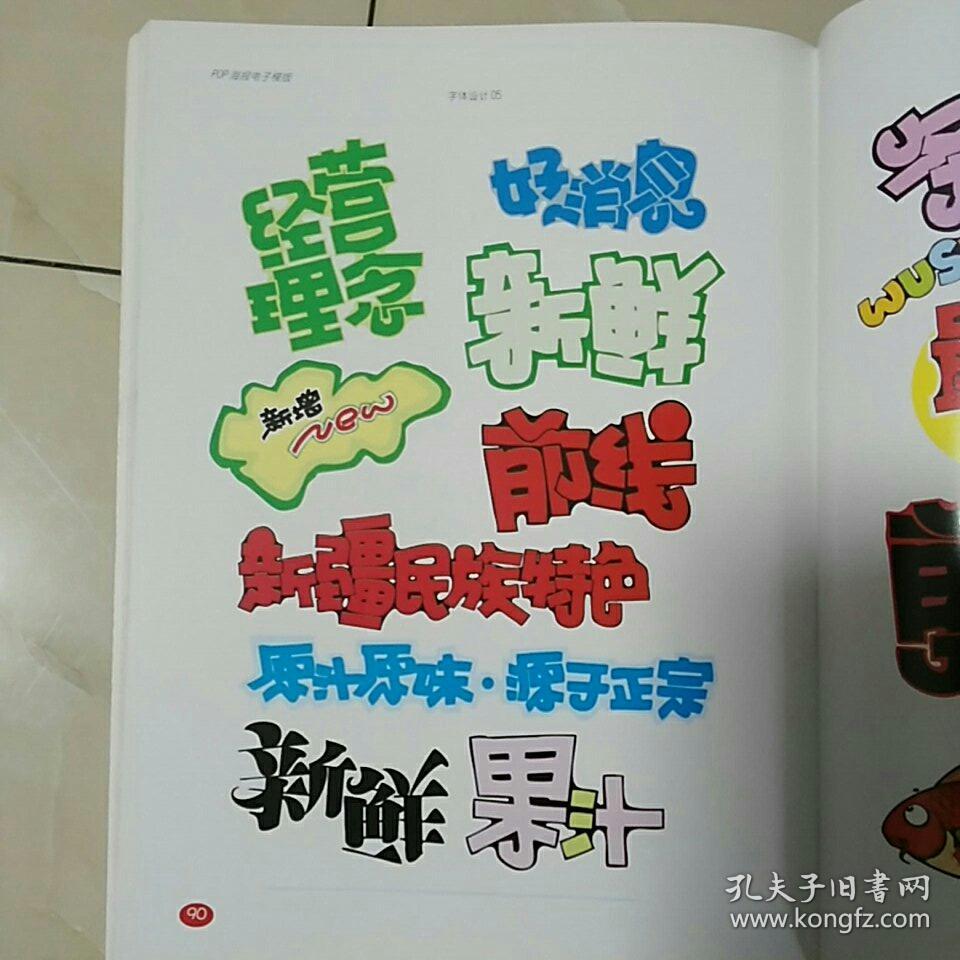 POP 海报电子模版
字体设计 05
经营
理念
好消息
新鲜
新增
前线
新疆民族特色
原汁原味·源于正宗
新鲜
果汁
90
孔夫子旧書网
www.kongfz.com